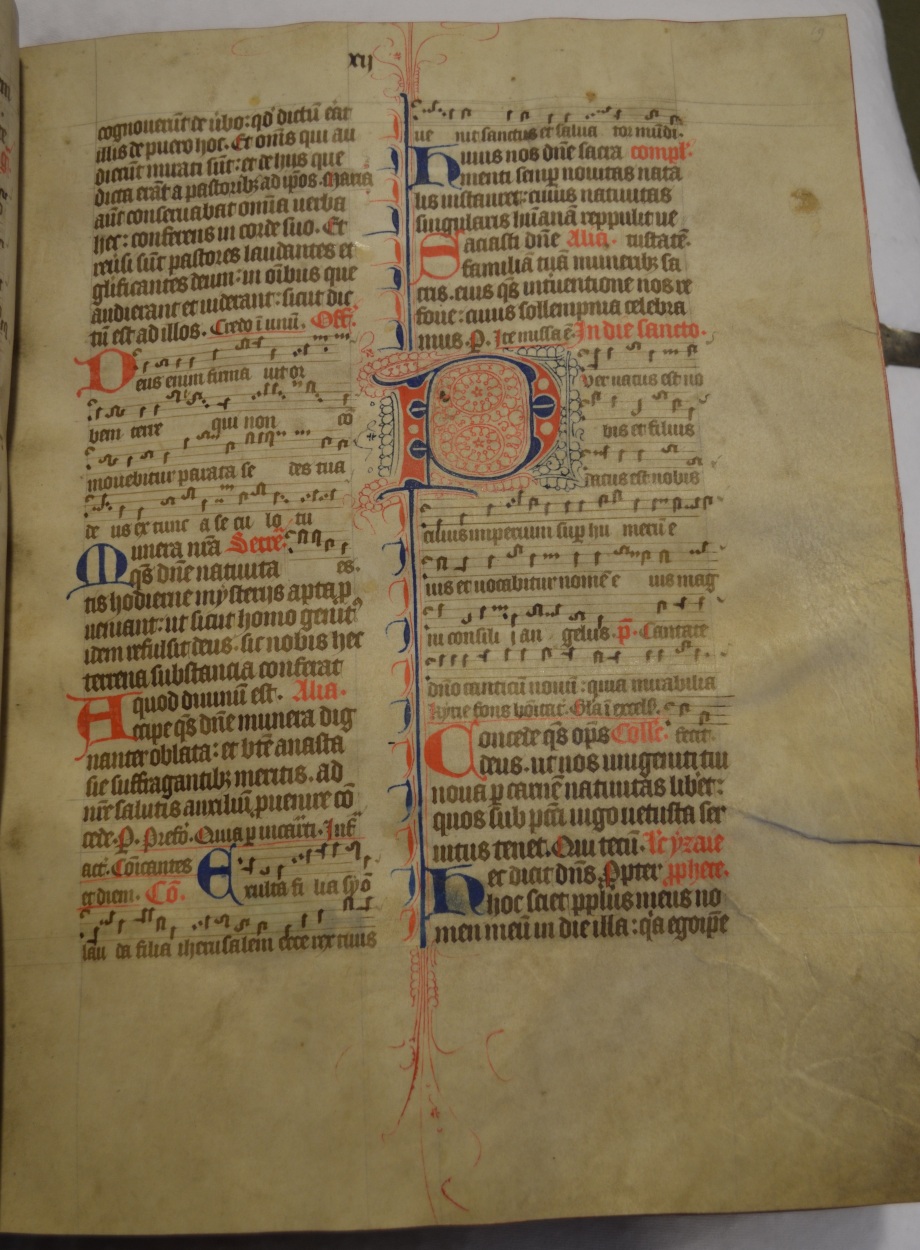 xij
cognouerūt de ūbo: qd̄ dictū erat
illis de puero hoc. Et om̄s qui au
dierunt mirati sūt: et de hijs que
dicta erāt a pastoribȝ ad ip̄os. Maria
aūt conseruabat om̄ia uerba
hec: conferens in corde suo. Et
reūsi sūt pastores laudantes et
glificantes deum: in oībus que
audierant et uiderant: sicut dic
tū est ad illos. Credo ī unū. Off̄.
Deus enim firma uit or
bem terre qui non cō
mouebitur parata se des tua
de us ex tunc a se cu lo tu
Munera nr̄a Secre. es.
qs̄ dn̄e natiuita
tis hodierne mysterijs apta ꝓ
ueniant: ut sicut homo genit⁹
idem refulsit deus. sic nobis hec
terrena substancia conferat
quod diuinū est. Alia.
Accipe qs̄ dn̄e munera dig
nanter oblata: et bt̄e anasta
sie suffragantibȝ meritis. ad
nr̄e salutis auxiliū ꝓuenire cō
cede. P. Prefō. Quia ꝑ incarti. Inf̄
act. Cōicantes Exulta fi lia syō
et diem. Cō.
lau da filia iherusalem ecce rex tuus
ue nit sanctus et salua tor mūdi.
Huius nos dn̄e sacra compl̄.
menti semꝑ nouitas nata
lis instauret: cuius natiuitas
singularis hūanā reppulit ue
Saciasti dn̄e Alia. tustatē.
familiā tuā muneribȝ sa
cris. eius qs̄ intuentione nos re
foue: cuius sollempnia celebra
mus. P. Ite missa ē. In die sancto.
Puer natus est no
bis et filius
datus est nobis
cuius imperium suꝑ hu merū e
ius et uocabitur nomē e ius mag
ni consili i an gelus. p̄. Cantate
dn̄o canticū nouū: quia mirabilia
Kyrie fons bonitat̄. Gl̄a ī excels̄. fecit.
Concede qs̄ op̄s Coll̄c.
deus. ut nos unigeniti tui
noua ꝑ carnē natiuitas liberꝫ:
quos sub pctī iugo uetusta ser
uitus tenet. Qui tecū. Le yzaie
Hec dicit dn̄s. Ppter ꝓphete.
hoc sciet pplus meus no
men meū in die illa: qa ego ip̄e